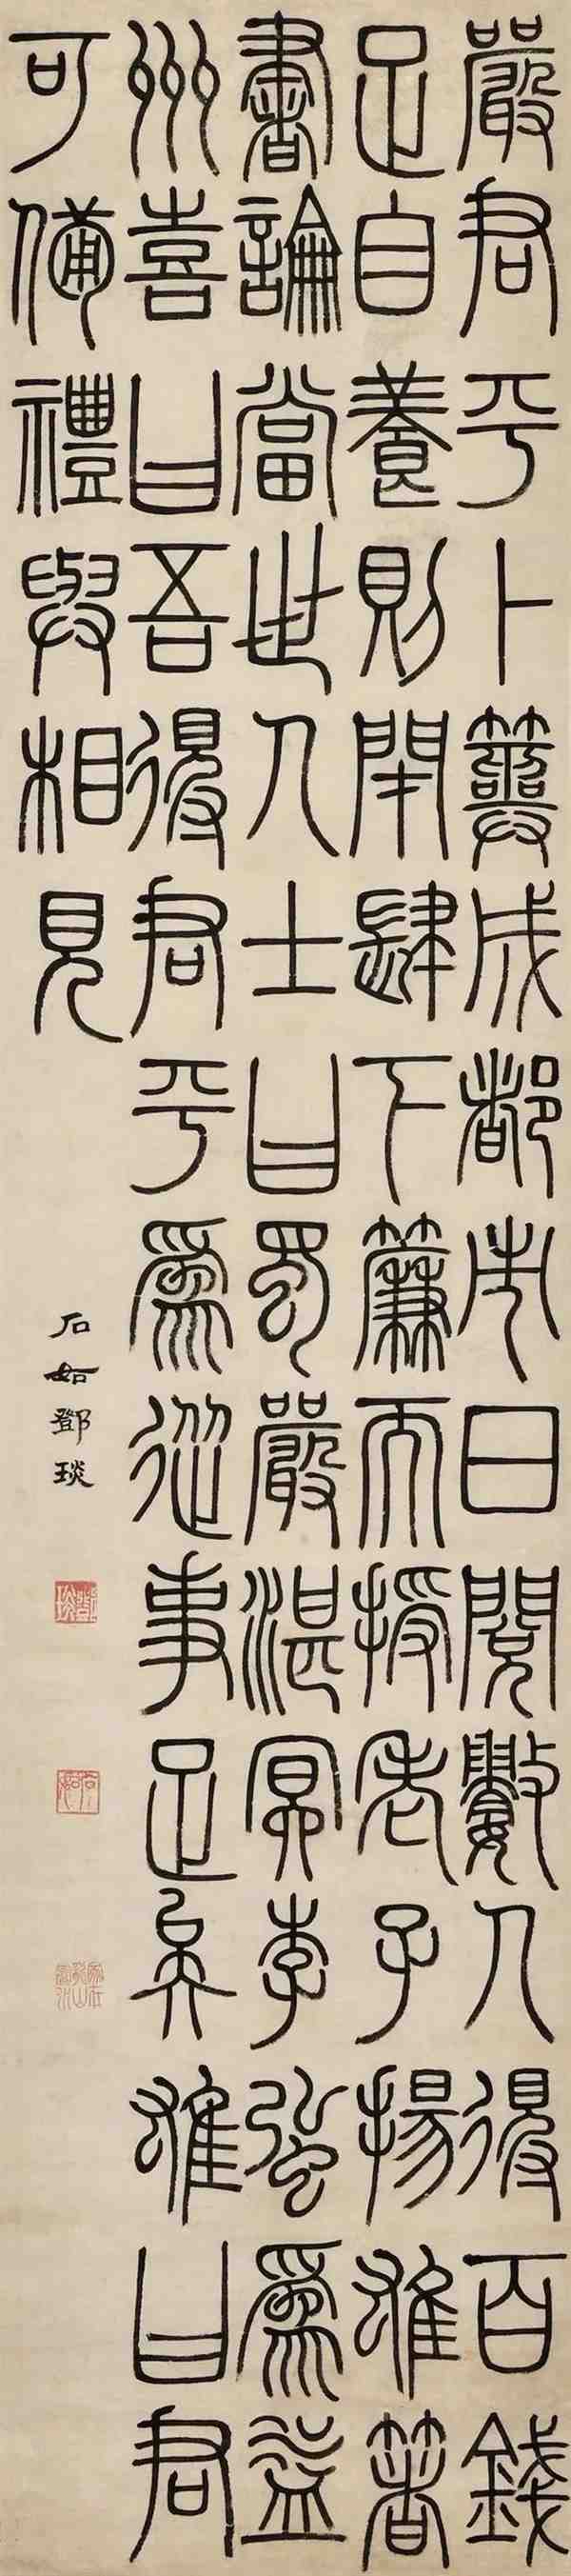 嚴君平卜筮成都市日閱數人得百錢
足自養則閉肆下簾而授老子揚雄著
書論當世人士曰蜀嚴湛冥李強為益
州喜曰吾得君平為從事足矣雄曰君
可備禮與相見
石如鄧琰
鄧琰
石如
家在龍山鳳水